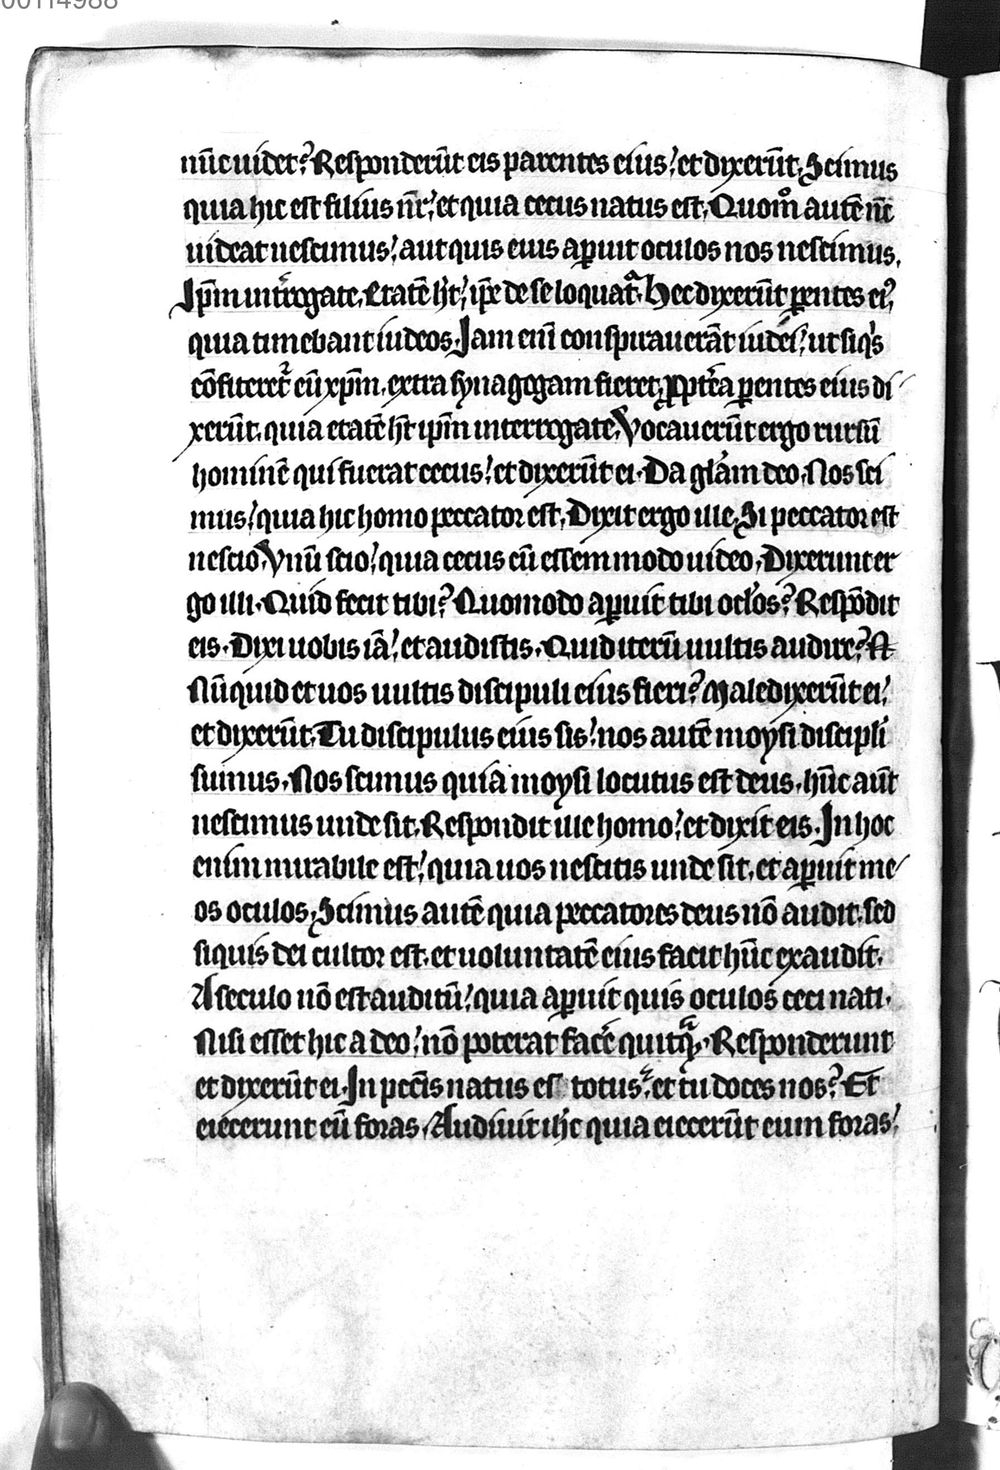 00114988
nūc uidet? Responderūt eis parentes eius? et dixerūt. Scimus
quia hic est filius nr̄? et quia cecus natus est. Quom̊ autē nc̄
uideat nescimus? aut quis eius aꝑuit oculos nos nescimus.
Ip̄m int̄rogate. Etatē hꝫ? ip̄e de se loquat᷑. Hec dixerūt ꝑentes ei⁹
quia timebant iudeos. Jam enī conspirauerāt iudei? ut siqͥs
cōfiteret᷑ eū xp̄m. extra synagogam fieret. Ꝓpt̄ea ꝑentes eius di
xerūt. quia etatē hꝫ ip̄m interrogate. Vocauerūt ergo rursū
hominē qui fuerat cecus? et dixerūt ei. Da gl̄am deo. Nos sci
mus? quia hic homo peccator est. Dixit ergo ille. Si peccator est
nescio. Vnū scio? quia cecus cū essem modo uideo. Dixerunt er
go illi. Quid fecit tibi? Quomodo aꝑuit tibi ocl̄os? Respōdit
eis. Dixi uobis iā? et audistis. Quid iterū uultis audire? N
Nūquid et uos uultis discipuli eius fieri? Maledixerūt ei?
et dixerūt. Tu discipulus eius sis? nos autē moysi discipl̄i
sumus. Nos scimus quia moysi locutus est deus. hūc aūt
nescimus unde sit. Respondit ille homo? et dixit eis. In hoc
enim mirabile est? quia uos nescitis unde sit. et aꝑuit me
os oculos. Scimus autē quia peccatores deus nō audit. sed
siquis dei cultor est. et uoluntatē eius facit hūc exaudit.
A seculo nō est auditū? quia aꝑuit quis oculos ceci nati.
Nisi esset hic a deo? nō poterat facē quitqᷓ. Responderunt
et dixerūt ei. In pcc̄is natus es totus? et tu doces nos? Et
eiecerunt eū foras. Audiuit ih̄c quia eiecerūt eum foras?